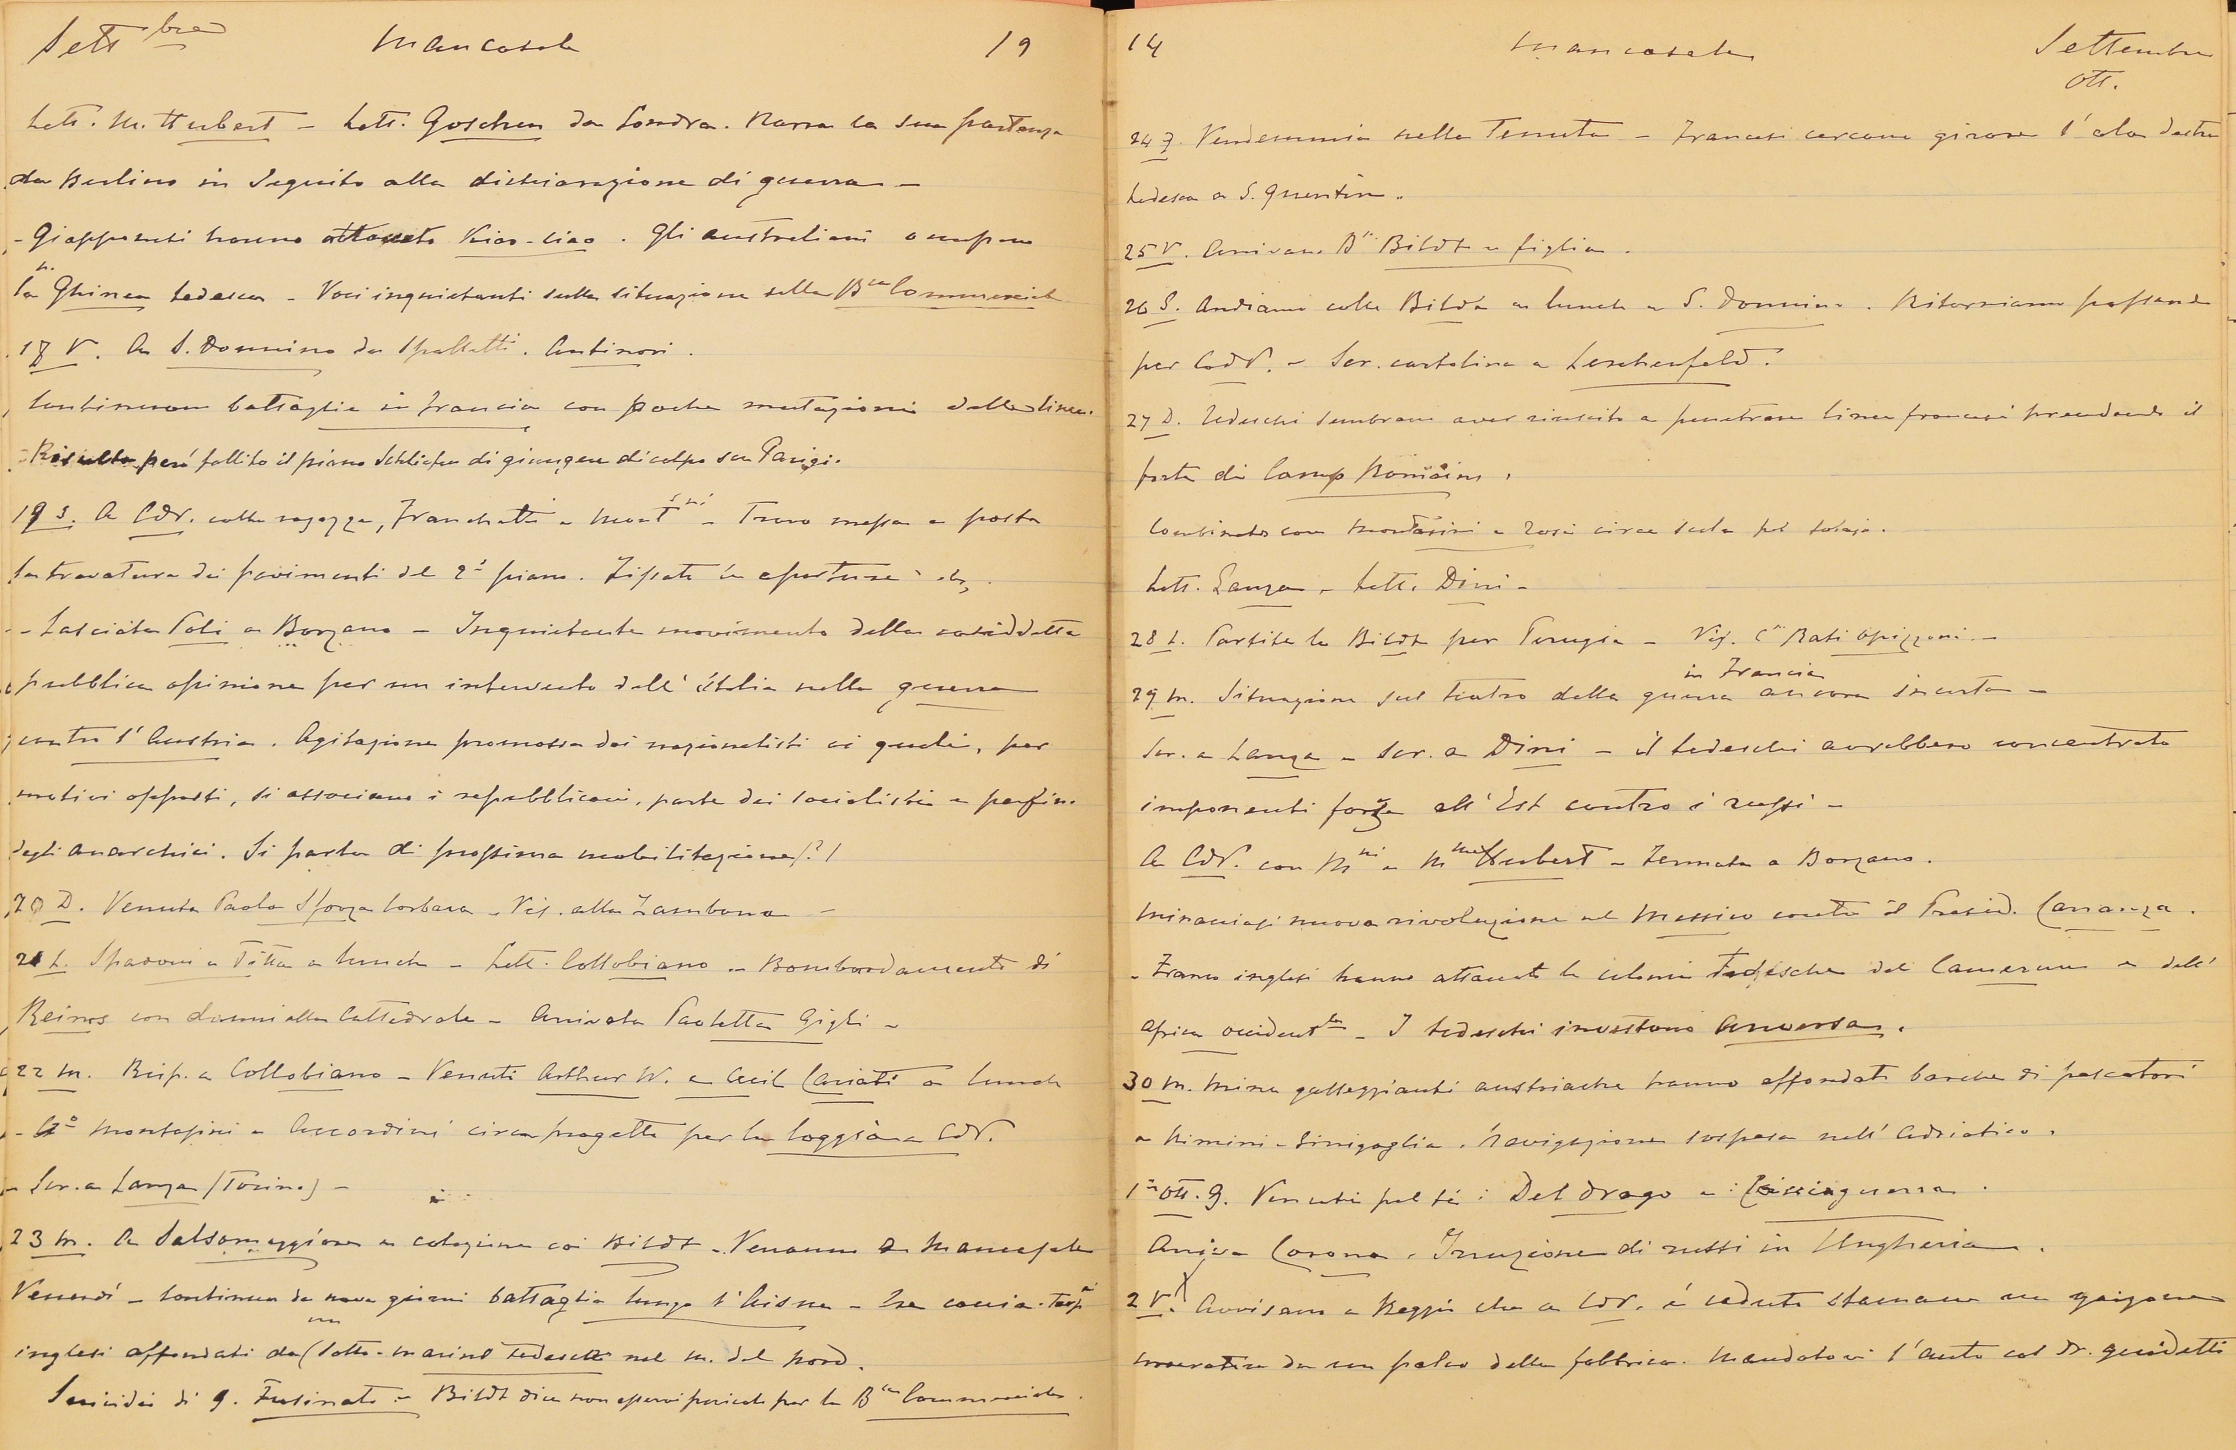 Sett bre Mancasale 19
Lett. M. Hubert – Lett. Goschen da Londra. Narra la sua partenza
da Berlino in seguito alla dichiarazione di guerra –
- Giapponesi hanno attaccato Kiao-ciao. Gli australiani occupano
la N. Ghinea tedesca – Voci inquietanti sulla situazione della Bca Commerciale
18 V. A S. Donnino da Spalletti. Antinori.
Continuano battaglie in Francia con poche mutazioni delle linee.
Risulta però fallito il piano Schliefen di giungere di colpo su Parigi.
19 S. A CdV. colle ragazze, Franchetti e Montni – Trovo messa a posto
la travatura dei pavimenti del 2º piano. Fissate le aperture etc.
- Lasciata Poli a Borzano – Inquietante movimento della cosiddetta
pubblica opinione per un intervento dell' Italia nella guerra
contro l'Austria. Agitazione promossa dai nazionalisti ai quali, per
motivi opposti, si associano i repubblicani, parte dei socialisti e perfino
degli anarchici. Si parla di prossima mobilitazione (?)
20 D. Venuta Paola Sforza Corbara – Vis. alla Zambona –
21 L. Spadoni e Titta a lunch – Lett. Collobiano – Bombardamento di
Reims con danni alla Cattedrale – Arrivata Paoletta Gigli –
22 M. Risp. a Collobiano – Venuti Arthur W. e Cecil Cariati a lunch
- Montasini e Accordini circa progetto per la loggia a CdV.
- Scr. a Lanza (Torino) –
23 M. A Salsomaggiore a colazione coi Bildt – Verranno a Mancasale
Venerdì – Continua da nove giorni battaglia lungo l'Aisne – Tre caccia-torp.
inglesi affondati da (un sotto-marino tedesco nel M. del Nord.
Suicidio di G. Fusinato – Bildt dice non esservi pericolo per la Bca Commerciale.
14 Mancasale Settembre
Ott.
24 G. Vendemmia nella Tenuta – Francesi cercano girare l'ala destra
tedesca a S. Quentin.
25 V. Arrivano Bssa Bildt e figlia.
26 S. Andiamo colle Bildt a lunch a S. Donnino. Ritorniamo passando
per CodV. – Scr. cartolina a Lerchenfeld.
27 D. Tedeschi sembrano aver riuscito a penetrare linea francese prendendo il
forte di Camp Romains.
Combinato con Montasini e Rosi circa scala pel solaio.
Lett. Lanza – Lett. Dini –
28 L. Partite le Bildt per Perugia – Vis. Cssa Rati Opizzoni –
29 M. Situazione sul teatro della guerra in Francia ancora incerta –
Scr. a Lanza – Scr. a Dini – i tedeschi avrebbero concentrato
imponenti forze all'Est contro i russi –
A CdV. con Mni e Mme Hubert – Fermata a Borzano.
Minacciasi nuova rivoluzione nel Messico contro il Presid. Carranza.
- Franco inglesi hanno attaccato le colonie tedesche del Camerun e dell'
Africa occidentle – I tedeschi investono Anversa.
30 M. Mine galleggianti austriache hanno affondato barche di pescatori
a Rimini – Sinigaglia. Navigazione sospesa nell'Adriatico.
1º Ott. G. Venuti pel tè: Del Drago e: Cacciaguerra.
Arriva Corona. Irruzione di russi in Ungheria.
2 V. Avvisano a Reggio che a CdV. è caduto stamane un garzone
muratore da un palco della fabbrica. Mandatovi l'auto col Dr. Guidetti